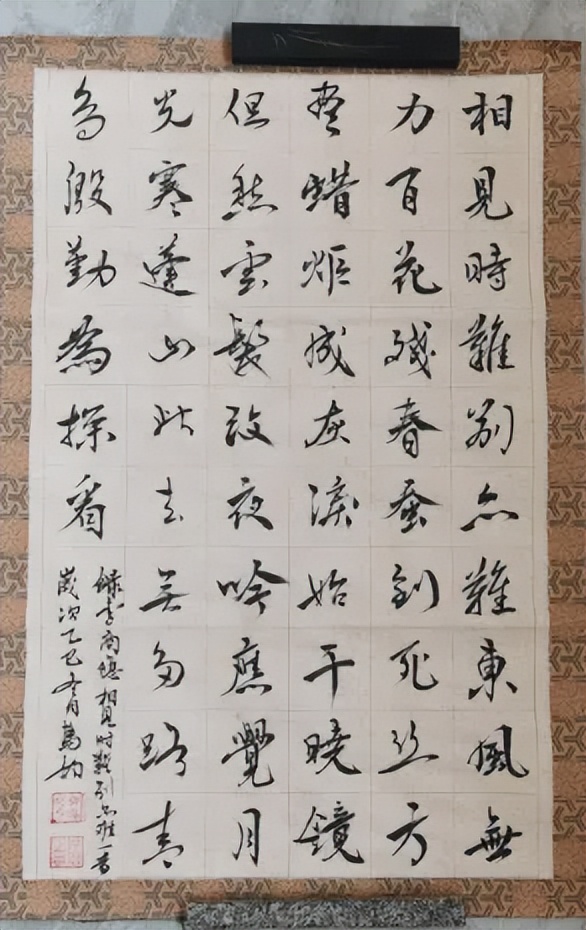 相見時難別亦難東風無
力百花殘春蚕到死丝方
盡蜡炬成灰淚始干曉鏡
但愁雲鬢改夜吟應覺月
光寒蓬山此去无多路青
鸟殷勤為探看
錄李商隐相見時難別亦難一首
歲次乙巳冬月萬